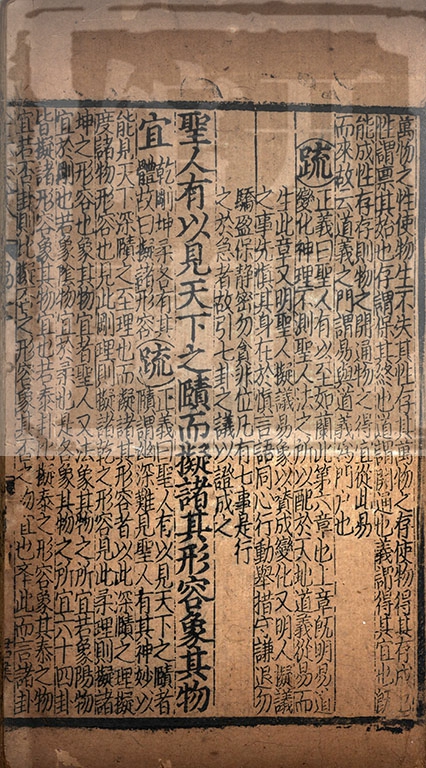 萬物之性使物生不失其性存其萬物之存使物得其存成也
性謂稟其始也存謂保其終也道謂開通也義謂得其宜也旣
能成性存存則物之開通物之得宜從此易
而來故云道義之門謂易與道義為門户也
疏正義曰聖人有以至如蘭此第六章也上章旣明易道
變化神理不測聖人法之所以配於天地道義從易而
生此章又明聖人擬議易象以贊成變化又明人擬議
之事先慎其身在於慎言語同心行動舉措守謙退勿
驕盈保靜密勿貪非位凡有七事是行
之於急者故引七卦之議以證成之
聖人有以見天下之賾而擬諸其形容象其物
宜乾剛坤柔各有其
體故曰擬諸形容
疏正義曰聖人有以見天下之賾者
賾謂幽深難見聖人有其神妙以
能見天下深賾之至理也而擬諸其形容者以此深賾之理擬
度諸物形容也見此剛理則擬諸乾之形容見此柔理則擬諸
坤之形容也象其物宜者聖人又法象其物之所宜若象陽物
宜於剛也若象陰物宜於柔也是各象其物之所宜六十四卦
皆擬諸形容象其物宜也若泰卦比擬泰之形容象其泰之物
宜若否卦則比擬否之形容象其否之物宜也舉此而言諸卦